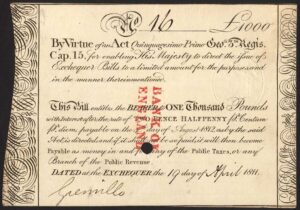 No. 16 £1000
By Virtue of an Act Quinquagesimo Primo Geo. 3.ii Regis.
Cap. 15. for enabling His Majesty to direct the Issue of
Exchequer Bills to a limited amount for the purposes and
in the manner therein mentioned.
This Bill entitles the BEARER to ONE Thousand Pounds
with Interest after the rate of TWO PENCE HALFPENNY ₱ Centum
₱ diem, payable on the day of August 1812, as by the said
Act is directed, and if it shall not be so paid, it will then become
Payable as money in and to any of the Public Taxes, or any
Branch of the Public Revenue.
DATED at the EXCHEQUER the 19 day of April 1811.
Grenville
BANK OF
ENGLAND